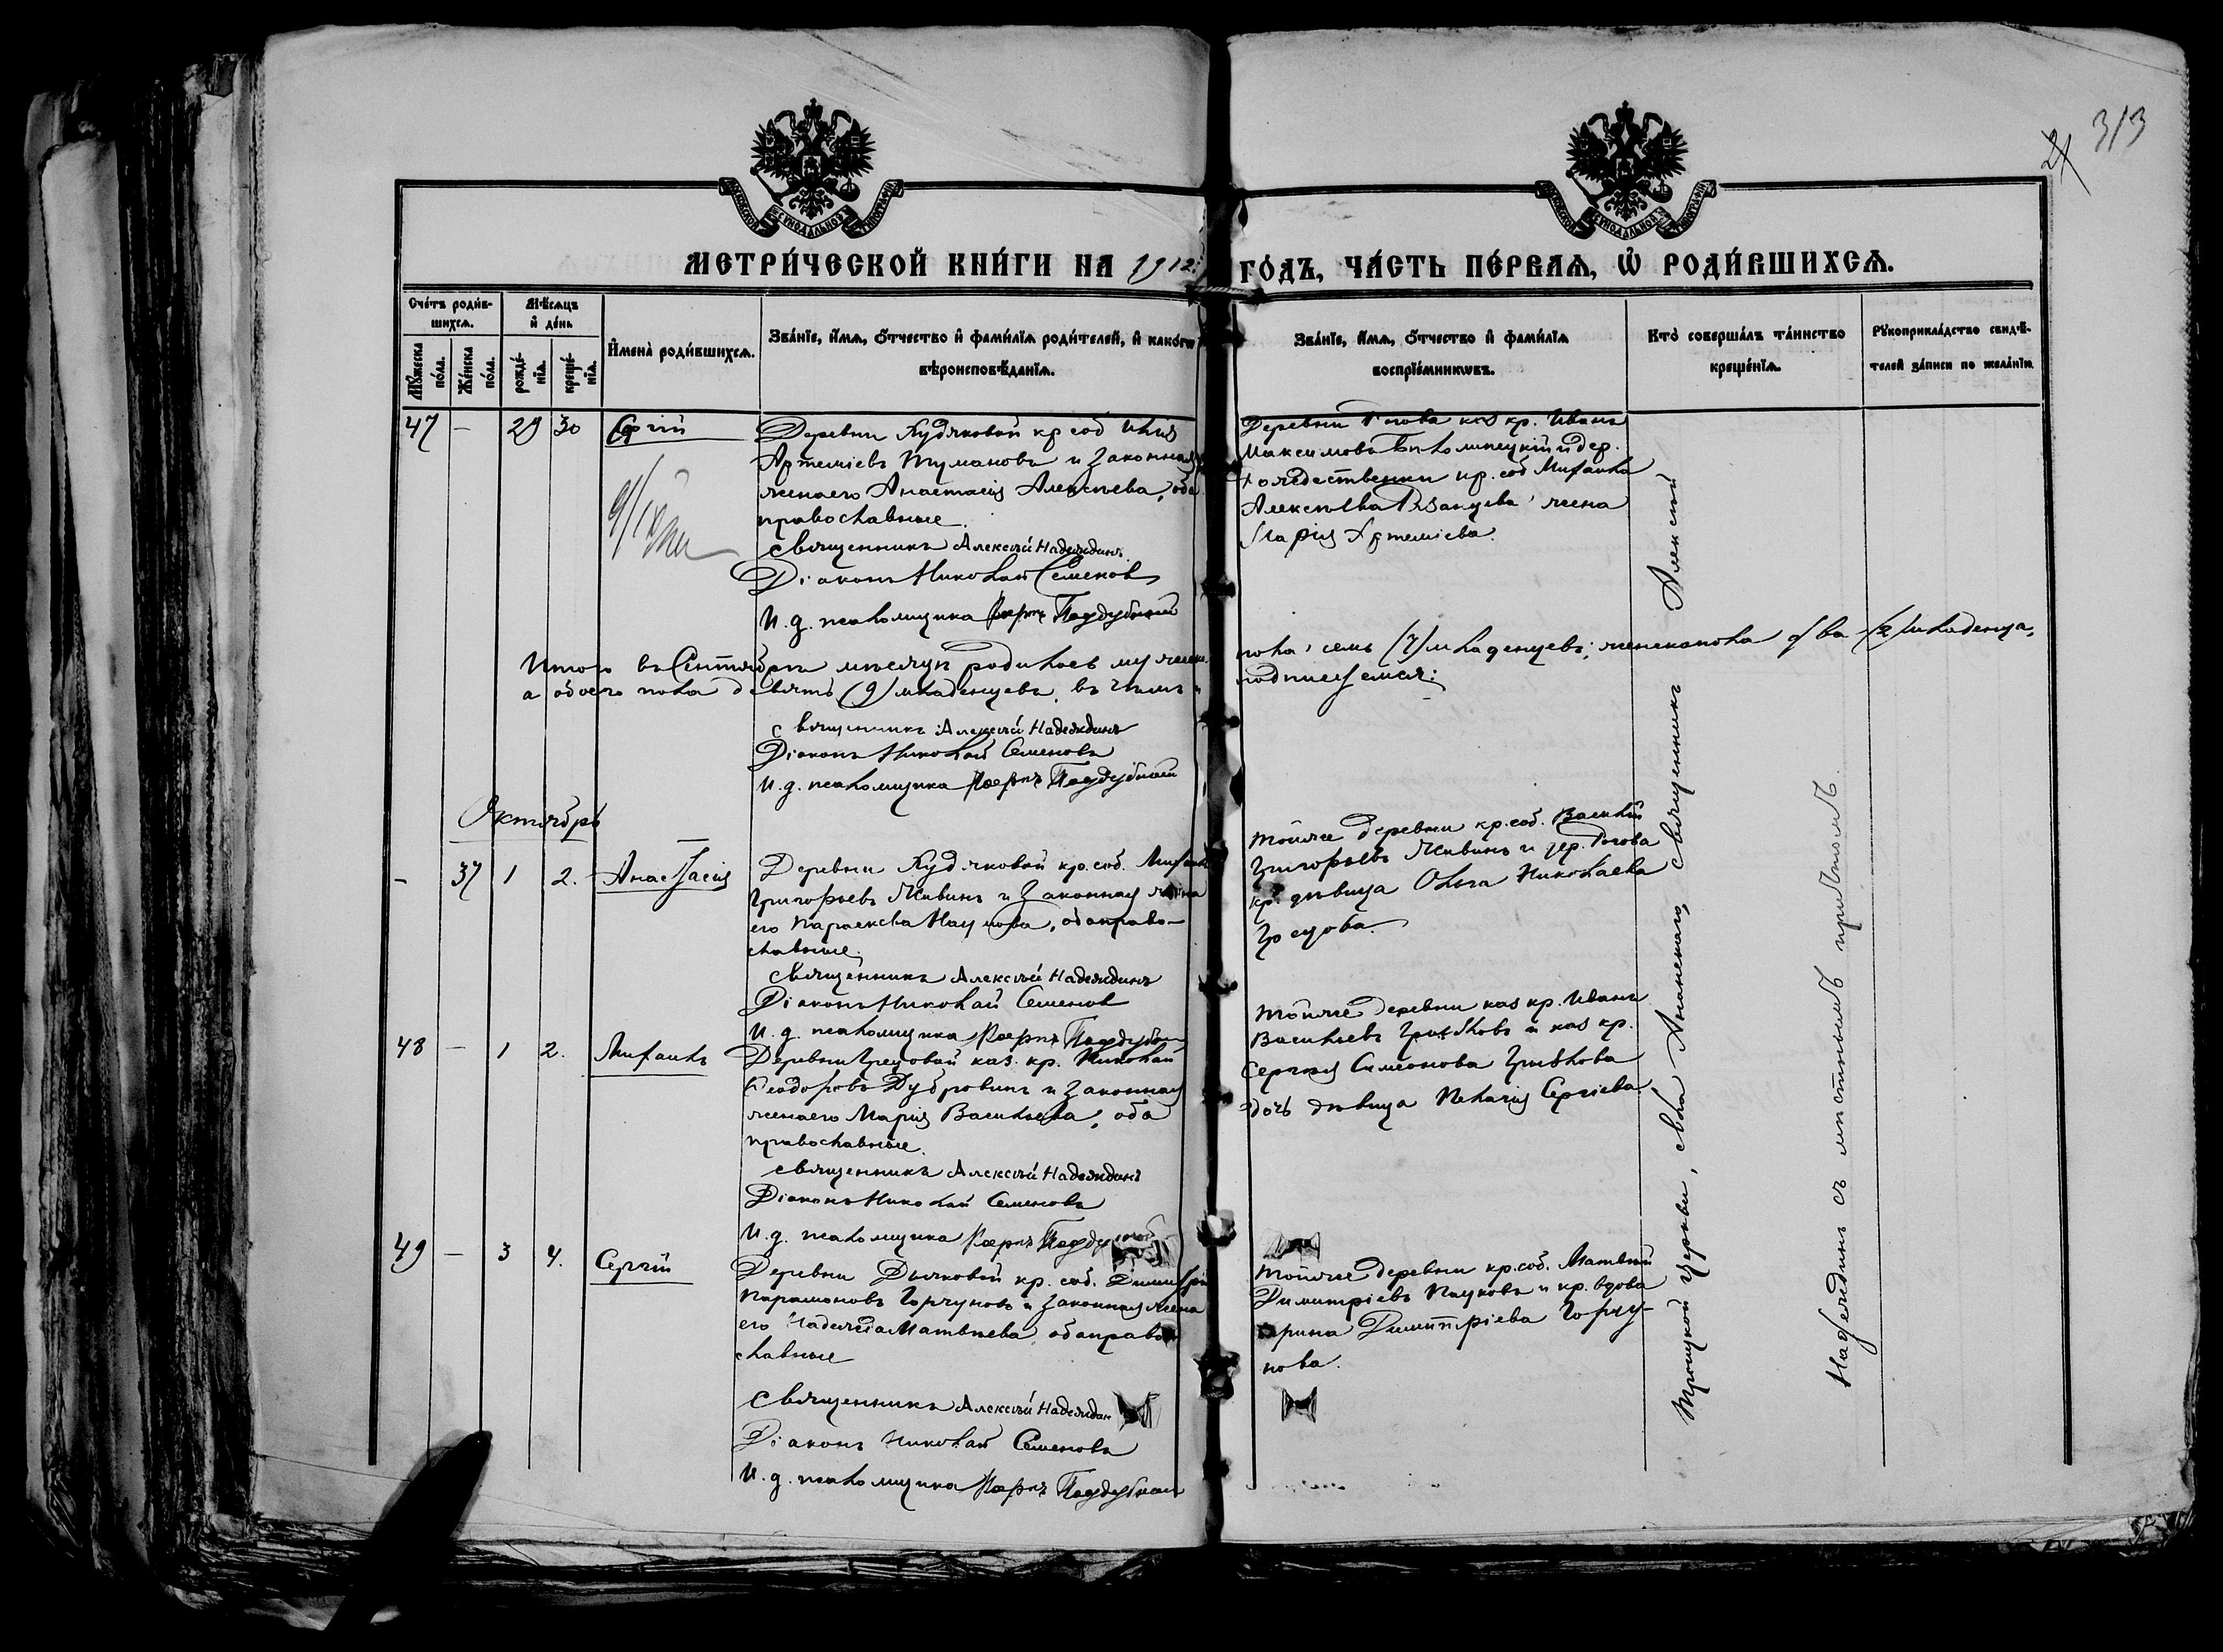 313
21
МЕТРИ́ЧЕСКОЙ КНИ́ГИ НА 1912 ГО́ДЪ, ЧА́СТЬ ПЕ́РВАѦ, Ѡ РОДИ́ВШИХСѦ.
Сче́тъ роди́в-
шихсѧ.
Мꙋ́жеска
по́ла.
Же́нска
по́ла.
Мѣ́сѧцъ
и де́нь
рожде́-
нїѧ.
креще́-
нїѧ.
Имена̀ роди́вшихсѧ.
Зва́нїе, и́мѧ, о́тчество и фами́лїѧ роди́телей, и како́гѡ
вѣроисповѣ́данїѧ.
Зва́нїе, и́мѧ, о́тчество и фами́лїѧ
воспрїе́мникѡвъ.
Кто̀ соверша́лъ та́инство
креще́нїѧ.
Рꙋкоприкла́дство свидѣ́-
телей за́писи по жела́нїю.
47 — 29 30 Сергій
Деревни Кудяковой кр соб Илія
Артеміевъ Тумановъ и законная
жена его Анастасія Алексѣева, оба
православные.
Священникъ Алексѣй Надеждинъ
Діаконъ Николай Семеновъ
И. д. псаломщика Карпъ Поддубный
кр. Иванъ
Максимовъ
кр. соб Михаила
Алексѣева жена
Марія Артеміева.
Итого въ Сентябрѣ мѣсяцѣ родилось мужеск.
пола семь (7) младенцевъ, женскаго пола два (2) младенца,
а обоего пола девять (9) младенцевъ, въ чемъ и
подписуемся:
Священникъ Алексѣй Надеждинъ
Діаконъ Николай Семеновъ
И. д. псаломщика Карпъ Поддубный
Октябрь
— 37 1 2. Анастасія
Деревни Кудяковой кр. соб. Михаилъ
Григорьевъ Живинъ и законная жена
его Параскева Наумова, оба право-
славные.
Священникъ Алексѣй Надеждинъ
Діаконъ Николай Семеновъ
И. д. псаломщика Карпъ Поддубный
Тойже деревни кр. соб. Василій
Григорьевъ Живинъ и дер. Рогова
кр. дѣвица Ольга Николаева
48 — 1 2. Михаилъ
Деревни Грецовой каз. кр. Николай
Ѳеодоровъ Дубровинъ и законная
жена его Марія Васильева, оба
православные.
Священникъ Алексѣй Надеждинъ
Діаконъ Николай Семеновъ
И. д. псаломщика Карпъ Поддубный
Тойже деревни каз кр. Иванъ
Васильевъ Грибковъ и каз кр.
Сергія Симеонова Грибкова
дочь дѣвица Пелагія Сергіева.
49 — 3 4. Сергій
Деревни Дьяковой кр. соб. Димитрій
Парамоновъ Горчуновъ и законная жена
его Надежда Матвѣева, оба право-
славные
Священникъ Алексѣй Надеждин
Діаконъ Николай Семеновъ
И. д. псаломщика Карпъ Поддубный
Тойже деревни кр. соб. Матвѣй
Димитріевъ Пауковъ и кр. вдова
Ирина Димитріева Горчу-
нова.
Троицкой церкви, села Ананскаго, священникъ Алексѣй
Надеждинъ съ мѣстнымъ причтомъ.